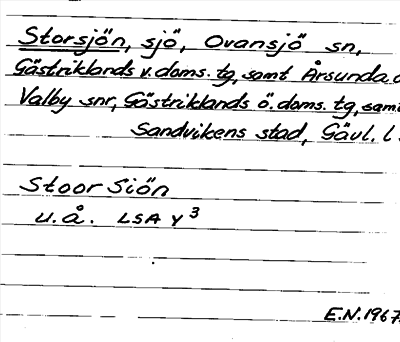 Storsjön, sjö, Ovansjö sn,
Gästriklands v. doms. tg, samt Årsunda o
Valby snr, Gästriklands ö. doms. tg, samt
Sandvikens stad, Gävl. l.
Stoor Siön
u.å. LSA Y³
E.N. 1967.